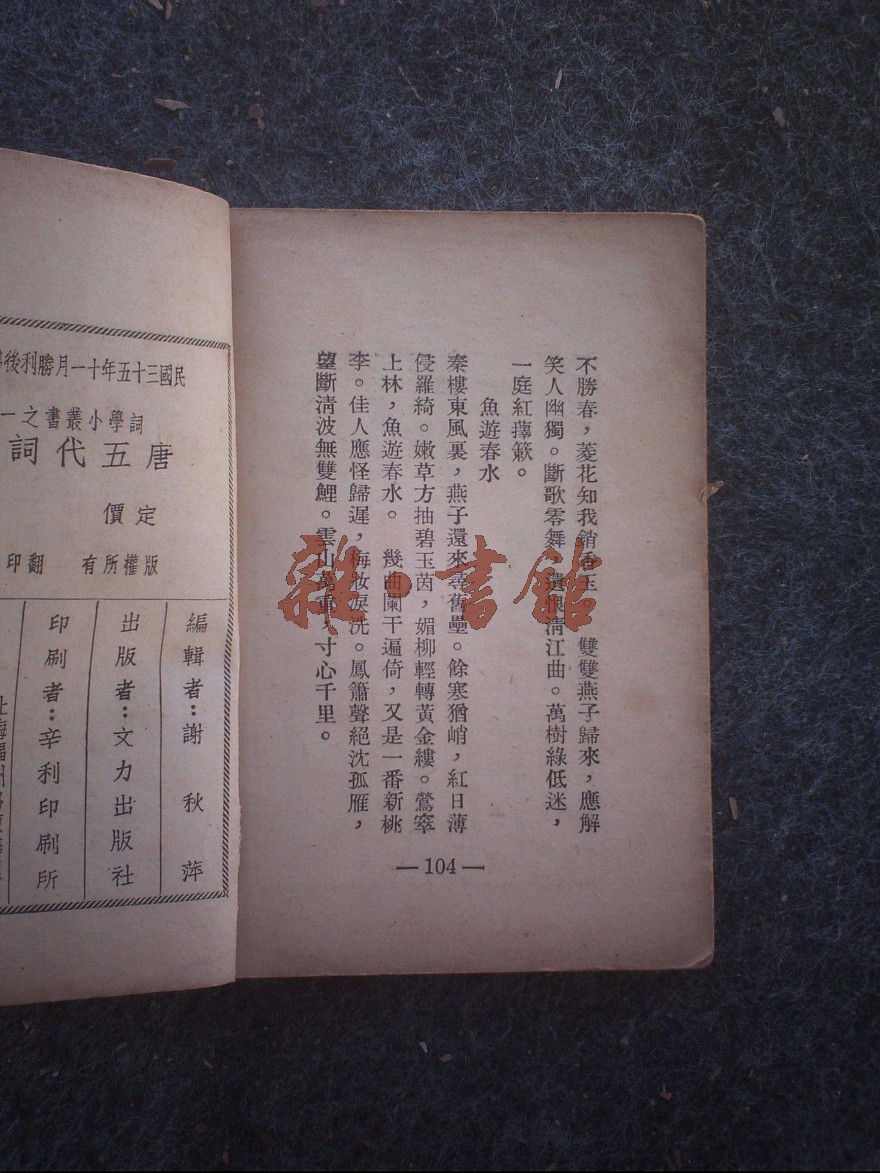 不勝春，菱花知我銷香玉。　雙雙燕子歸來，應解
笑人幽獨。斷歌零舞，遺恨清江曲。萬樹綠低迷，
一庭紅撲簌。
魚遊春水
秦樓東風裏，燕子還來尋舊壘。餘寒猶峭，紅日薄
侵羅綺。嫩草方抽碧玉茵，媚柳輕轉黃金縷。鶯窣
上林，魚遊春水。　幾曲闌干遍倚，又是一番新桃
李。佳人應怪歸遲，梅妝淚洗。鳳簫聲絕沈孤雁，
望斷清波無雙鯉。雲山萬重，寸心千里。
—104—
民國三十五年十一月勝利後
詞學小叢書之一
唐五代詞
定價
版權所有　翻印
編輯者：謝秋萍
出版者：文力出版社
印刷者：辛利印刷所
雜·書館